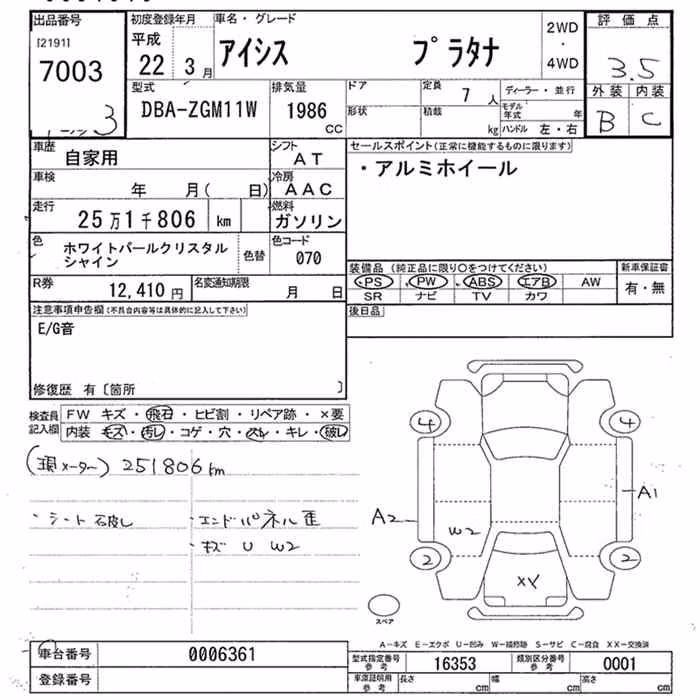 出品番号 初度登録年月 車名・グレード 評価点
[2191] 平成 アイシス プラタナ 2WD
7003 22 3月 ・ 3.5
4WD
型式 排気量 ドア 定員 7 人 ディーラー・並行 外装 内装
DBA-ZGM11W 1986 CC 形状 積載 kg モデル年式 年 B C
3 ハンドル 左・右
車歴 自家用 シフト AT セールスポイント(正常に機能するものに限ります)
車検 年 月( 日) 冷房 AAC ・アルミホイール
走行 25万1千806 km 燃料 ガソリン
色 ホワイトパールクリスタル
シャイン 色替 色コード 070
装備品(純正品に限り○をつけてください) 新車保証書
PS PW ABS エアB AW 有・無
SR ナビ TV カワ
R券 12,410 円 名変通知期限 月 日
後日品
注意事項申告欄(不具合内容等は具体的に記入して下さい)
E/G音
修復歴 有〔箇所 〕
検査員 FW キズ・飛石・ヒビ割・リペア跡・×要
記入欄 内装 キズ・汚レ・コゲ・穴・スレ・キレ・破レ
(現メーター) 251806km
・シート破レ ・エンドパネル歪
・キズ U W2
4 4
A2 A1
W2
2 2
XV
スペア
A-キズ E-エクボ U-凹み W-補修跡 S-サビ C-腐食 XX-交換済
車台番号 0006361 型式指定番号 参考 16353 類別区分番号 参考 0001
登録番号 車庫証明用 参考 長さ cm 幅 cm 高さ cm